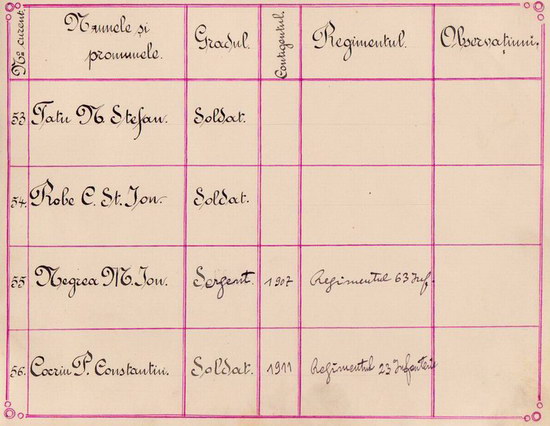 № curent. Numele și pronumele. Gradul. Contigentul. Regimentul. Observațiuni.
53 Tatu N. Stefan. Soldat.
54. Robe C. St. Ion. Soldat.
55 Negrea M. Ion. Sergent. 1907 Regimentul 63 Inf.
56. Cocriu P. Constantin. Soldat. 1911 Regimentul 23 Infanterie